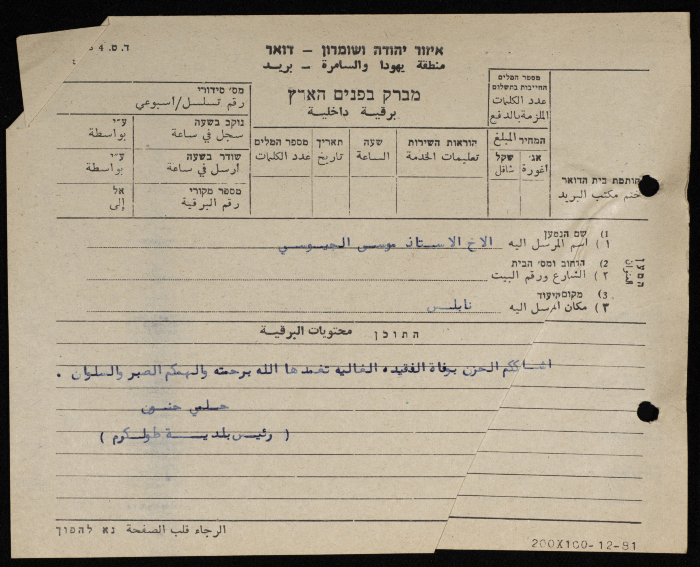 ד.ט. 4
איזור יהודה ושומרון - דואר
منطقة يهودا والسامرة - بريد
מברק בפנים הארץ
برقية داخلية
מספר המלים
החייבות בתשלום
عدد الكلمات
الملزمة بالدفع
המחיר المبلغ
שקל
شاقل
אג'
أغورة
חותמת בית הדואר
ختم مكتب البريد
הוראות השירות
تعليمات الخدمة
שעה
الساعة
תאריך
تاريخ
מספר המלים
عدد الكلمات
מס' סידורי
رقم تسلسل/اسبوعي
נוקב בשעה
سجل في ساعة
ע"י
بواسطة
שודר בשעה
أرسل في ساعة
ע"י
بواسطة
מספר מקורי
رقم البرقية
אל
إلى
המען
العنوان
1) שם הנמען
١) اسم المرسل اليه الاخ الاستاذ موسى الجيوسي
2) הרחוב ומס' הבית
٢) الشارع ورقم البيت
3) מקום היעוד
٣) مكان المرسل اليه نابلس
התוכן محتويات البرقية
اشاككم الحزن بوفاة الفقيده الغاليه تغمدها الله برحمته والهمكم الصبر والسلوان .
حلمي حنون
( رئيس بلدية طولكرم )
الرجاء قلب الصفحة נא להפוך
200X100-12-81